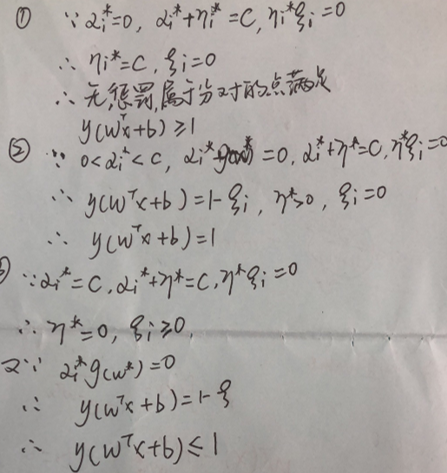 ① ∵ αi*=0, αi*+ηi*=C, ηi*ξi=0
∴ ηi*=C, ξi=0
∴ 无惩罚,属于分对的点满足
y(wᵀx+b)≥1
② ∵ 0<αi*<C, αi*g(w*)=0, αi*+η*=C, η*ξi=0
∴ y(wᵀx+b)=1-ξi, η*>0, ξi=0
∴ y(wᵀx+b)=1
③ ∵ αi*=C, αi*+η*=C, η*ξi=0
∴ η*=0, ξi≥0,
又∵ αi*g(w*)=0
∴ y(wᵀx+b)=1-ξ
∴ y(wᵀx+b)≤1